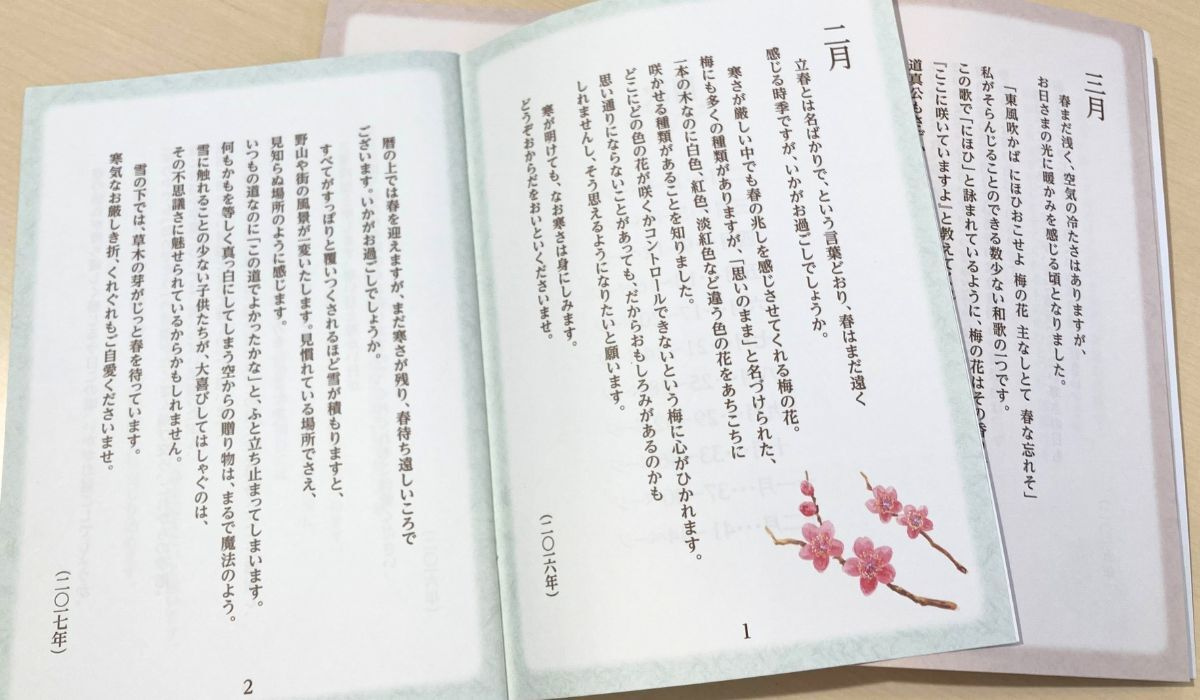 二月
立春とは名ばかりで、という言葉どおり、春はまだ遠く
感じる時季ですが、いかがお過ごしでしょうか。
寒さが厳しい中でも春の兆しを感じさせてくれる梅の花。
梅にも多くの種類がありますが、「思いのまま」と名づけられた、
一本の木なのに白色、紅色、淡紅色など違う色の花をあちこちに
咲かせる種類があることを知りました。
どこにどの色の花が咲くかコントロールできないという梅に心がひかれます。
思い通りにならないことがあっても、だからおもしろみがあるのかも
しれませんし、そう思えるようになりたいと願います。
寒が明けても、なお寒さは身にしみます。
どうぞおからだをおいといくださいませ。
(二〇一六年)
1
暦の上では春を迎えますが、まだ寒さが残り、春待ち遠しいころで
ございます。いかがお過ごしでしょうか。
すべてがすっぽりと覆いつくされるほど雪が積もりますと、
野山や街の風景が一変いたします。見慣れている場所でさえ、
見知らぬ場所のように感じます。
いつもの道なのに「この道でよかったかな」と、ふと立ち止まってしまいます。
何もかもを等しく真っ白にしてしまう空からの贈り物は、まるで魔法のよう。
雪に触れることの少ない子供たちが、大喜びしてはしゃぐのは、
その不思議さに魅せられているからかもしれません。
雪の下では、草木の芽がじっと春を待っています。
寒気なお厳しき折、くれぐれもご自愛くださいませ。
(二〇一七年)
2
三月
春まだ浅く、空気の冷たさはありますが、
お日さまの光に暖かみを感じる頃となりました。
「東風吹かば にほひおこせよ 梅の花 主なしとて 春な忘れそ」
私がそらんじることのできる数少ない和歌の一つです。
この歌で「にほひ」と詠まれているように、梅の花はその香
「ここに咲いていますよ」と教えて
道真公も